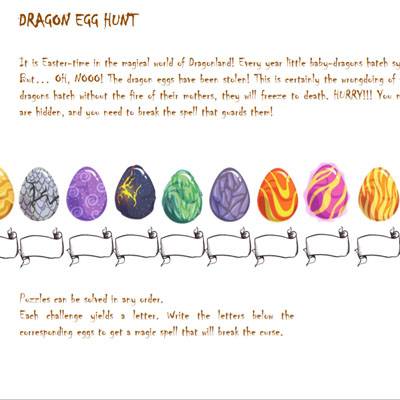 DRAGON EGG HUNT
It is Easter-time in the magical world of Dragonland! Every year little baby-dragons hatch
But... OH, NOOO! The dragon eggs have been stolen! This is certainly the wrongdoing of
dragons hatch without the fire of their mothers, they will freeze to death. HURRY!!! You
are hidden, and you need to break the spell that guards them!
Puzzles can be solved in any order.
Each challenge yields a letter. Write the letters below the
corresponding eggs to get a magic spell that will break the curse.